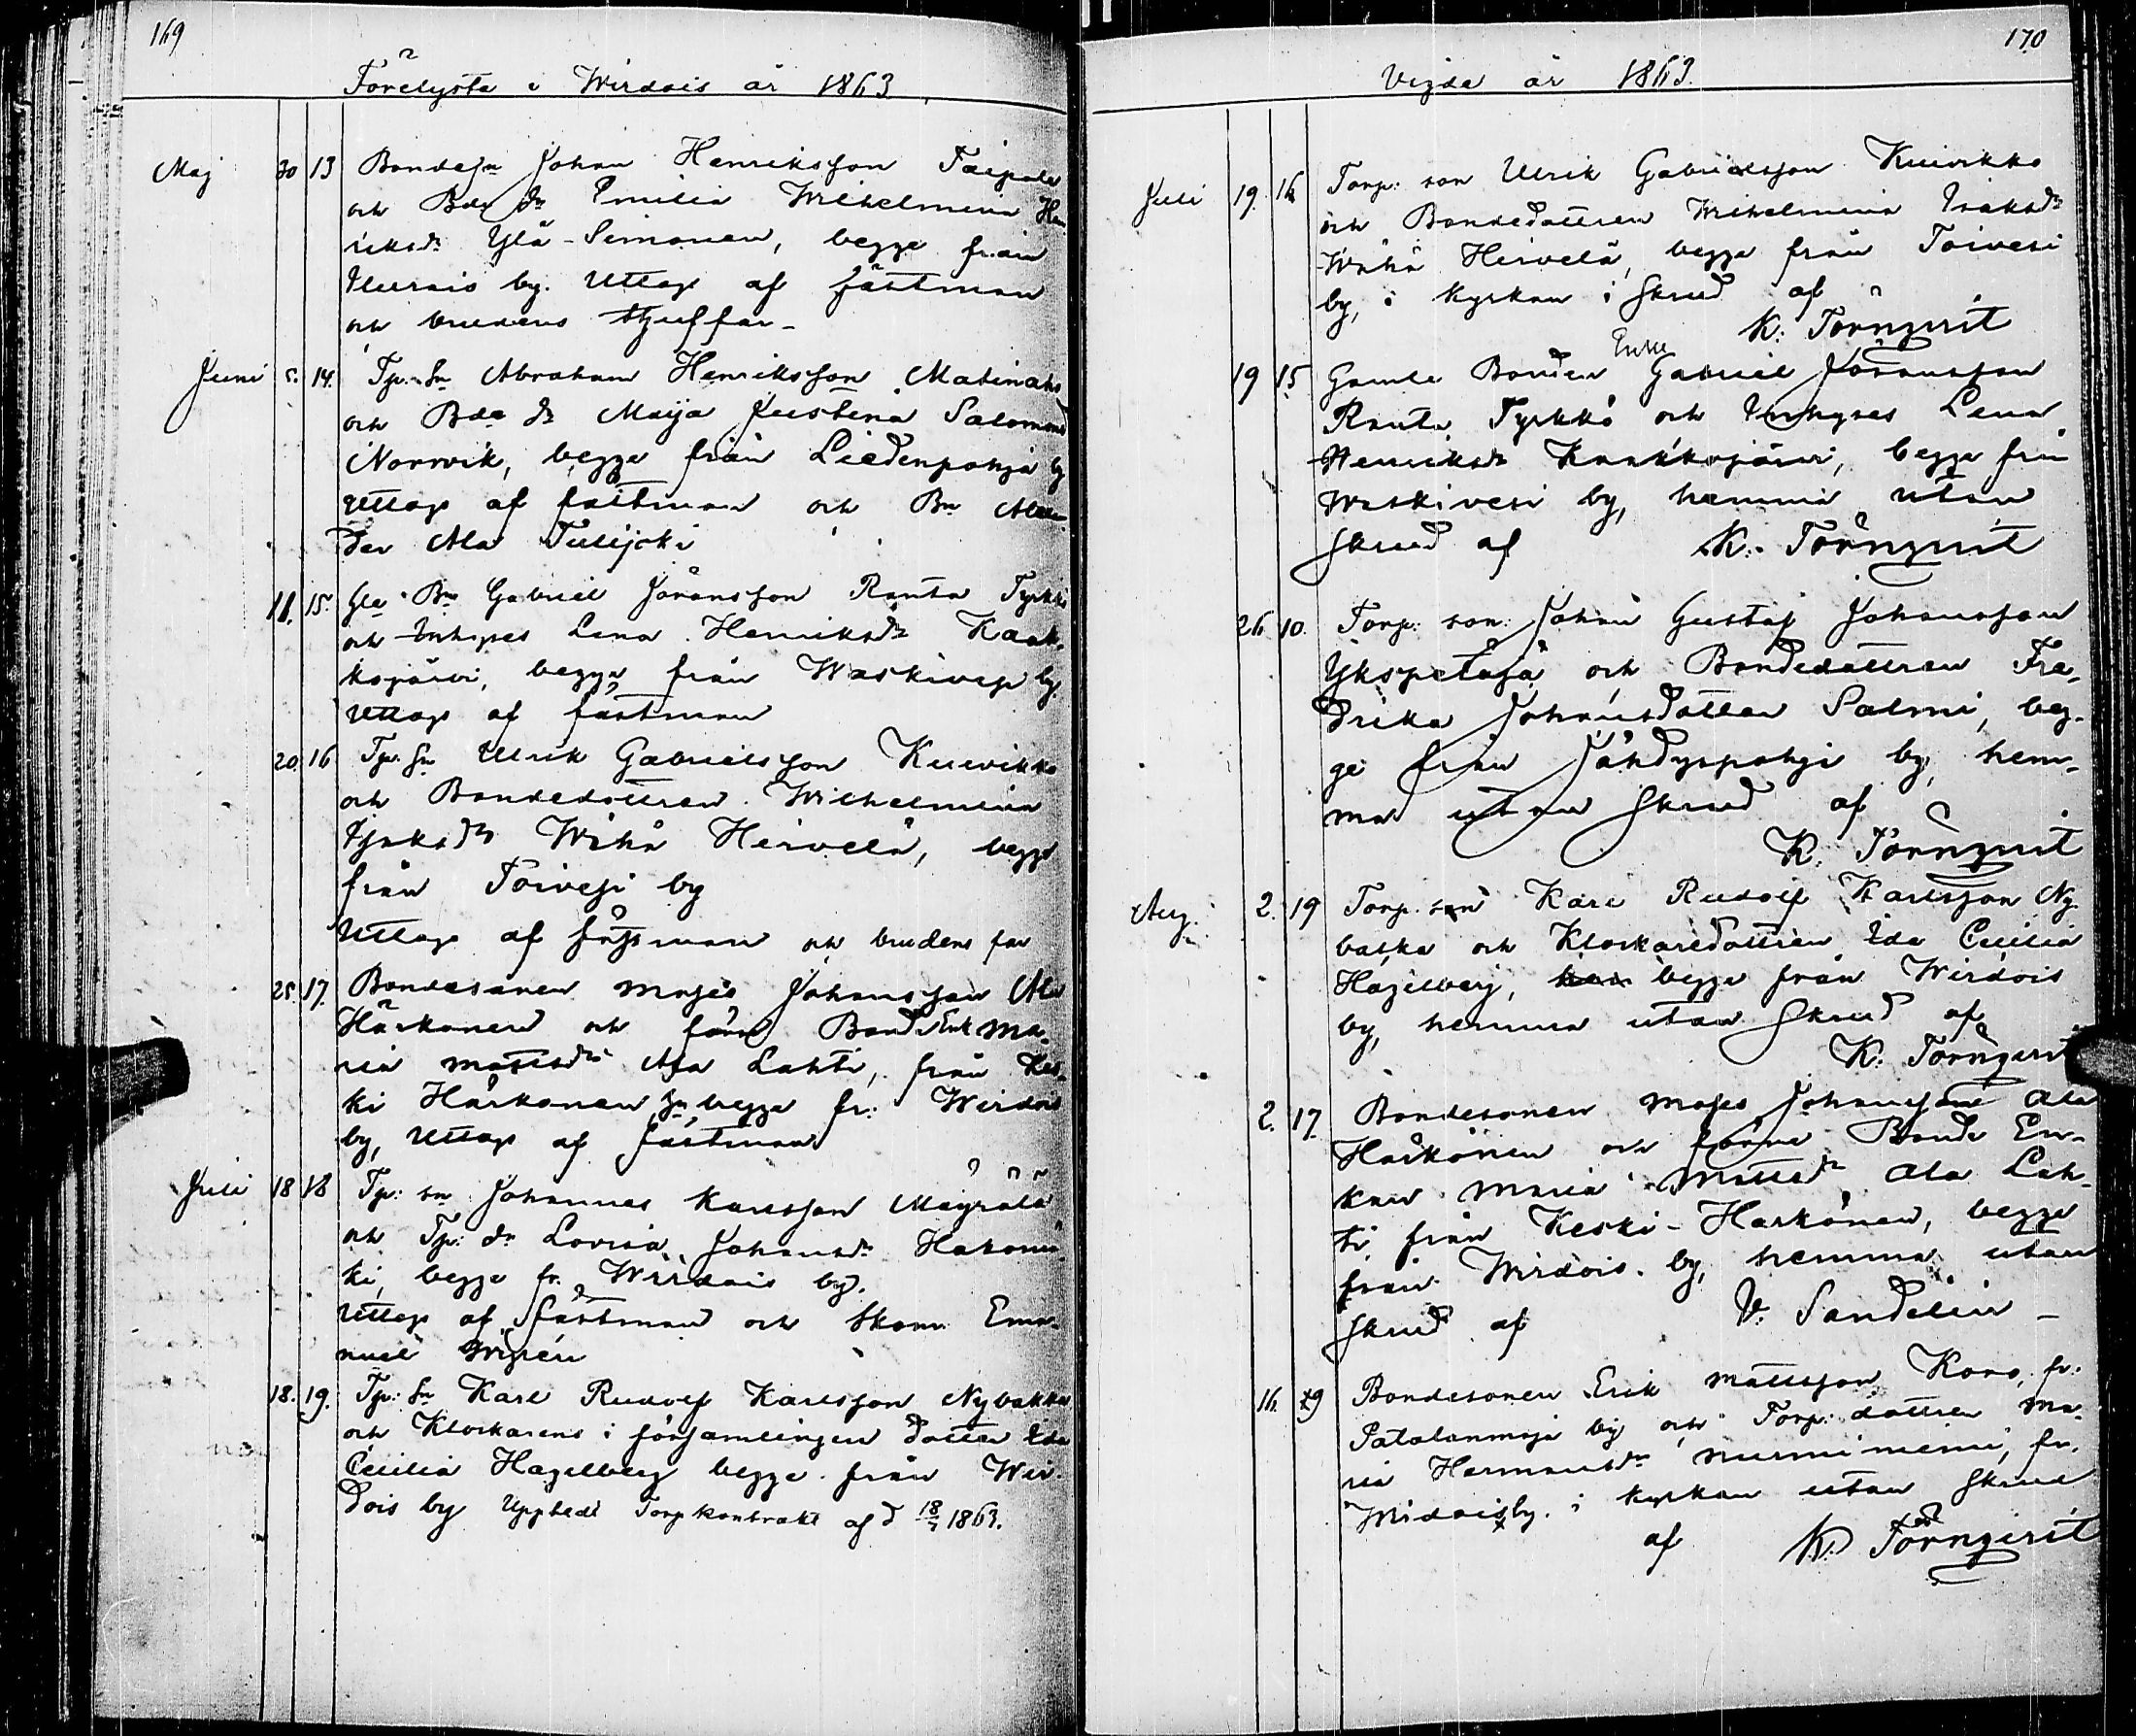 169
Förelysta i Wirdois år 1863.
Maj 30 13 Bondesn Johan Henriksson Taipale
och Bde dr Emilia Wilhelmina Hen
riksdr Ylä-Simonen, begge från
by. Uttags af fästman
och brudens styffar-
Juni 5. 14. Tp. Sn Abraham Henriksson
och Bde dr Maija Justina Salomonsd
Norrvik, begge från Liedenpohja by
Uttags af fästman och Bn
der Ala Tulijoki
11. 15. Gla Bn Gabriel Jöransson Ranta Tyrkkö
och Inhyses Lena Henriksdr Kaak-
kojärvi, begge från Waskivesi by.
Uttags af fästman
20. 16 Tp. Sn Ulrik Gabrielsson Kuivikko
och Bondedottren Wilhelmina
Isaksdr Wähä Heivelä, begge
från Toivesi by
Uttags af fästman och brudens far
25. 17. Bondesonen Moses Johansson Ala
Härkönen och förre Bonde Enk Ma-
ria Mattsdr Ala Lahti, från Kes-
ki Härkönen, begge fr: Wirdois
by, Uttags af fästman
Juli 18 18 Tp: sn Johannes Karlsson Mäyrälä
och Tp: dr Lovisa Johansdr
ki, begge fr. Wirdois by.
Uttags af fästman och Skom. Ema-
nuel
18. 19. Tp: Sn Karl Rudolf Karlsson Nybakka
och Klockarens i församlingen dotter Ida
Cecilia Hagelberg begge från Wir-
dois by Uppbadt Torpkontrakt af d 18/7 1863.
170
Vigda år 1863.
Juli 19. 16 Torp: son Ulrik Gabrielsson Kuivikko
och Bondedottren Wilhelmina Isaksdr
Wähä Heivelä, begge från Toivesi
by, i kyrkan i skrud af
K: Törnqvist
19 15 Gamle Bonden Enkl Gabriel Jöransson
Ranta Tyrkkö och Inhyses Lena
Henriksdr Kaakkojärvi, begge från
Waskivesi by, hemma utan
skrud af K: Törnqvist
26 10. Torp: son: Johan Gustaf Johansson
Ykspetäjä och Bondedottren Fre-
drika Johansdotter Salmi, beg-
ge från Jähdyspohja by, hem-
ma utan skrud af
K: Törnqvist
Aug. 2. 19 Torp. son Karl Rudolf Karlsson Ny-
bakka och Klockaredottren Ida Cecilia
Hagelberg, begge från Wirdois
by, hemma utan skrud af
K. Törnqvist
2. 17. Bondesonen Moses Johansson Ala
Härkönen och förra Bonde En-
kan Maria Mattsdr Ala Lah-
ti, från Keski-Härkönen, begge
från Wirdois by, hemma utan
skrud af V. Sandelin -
16. 29 Bondesonen Erik Mattsson Koro, fr:
by och Torp: dottren Ma-
ria Hermansdr Nurminiemi, fr.
Wirdois by. i kyrkan utan skrud
af K. Törnqvist